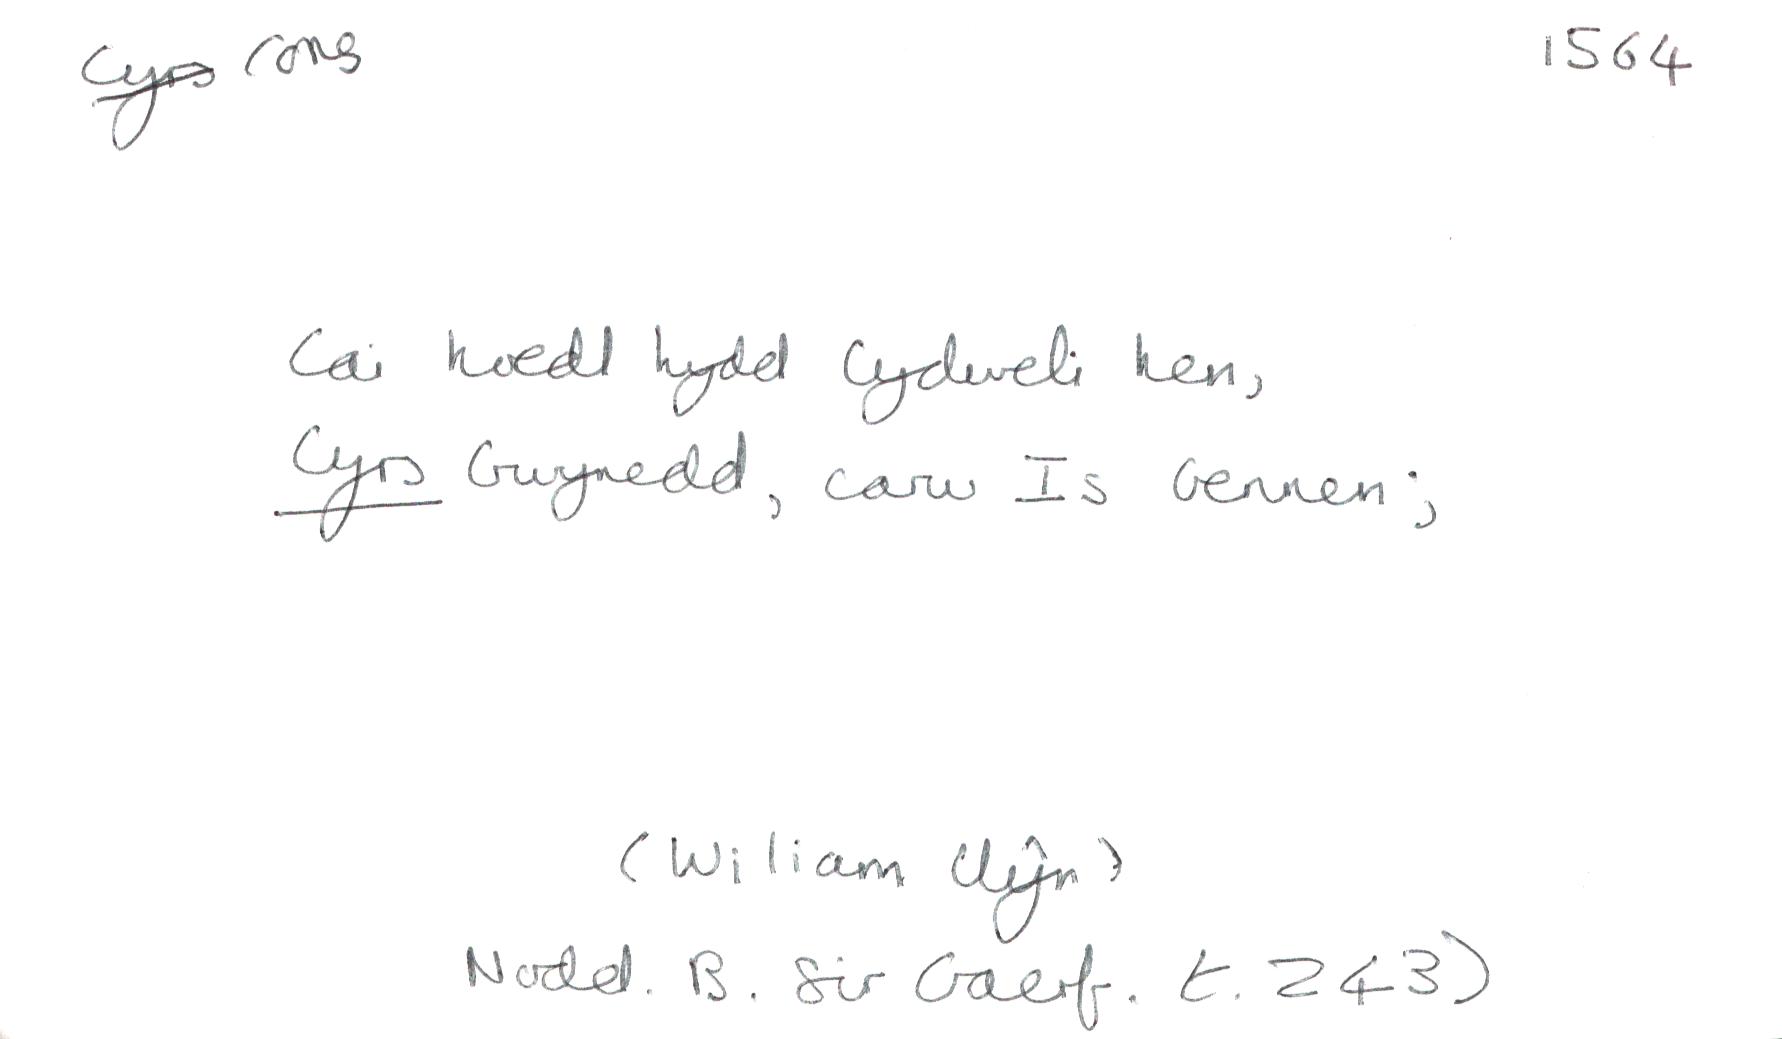 Cyrs cors 1564
Cai hoedl hydd Cydweli hen,
Cyrs Gwynedd, carw Is Cennen;
(Wiliam Llŷn)
Nodd. B. Sir Gaerf. t. 243)